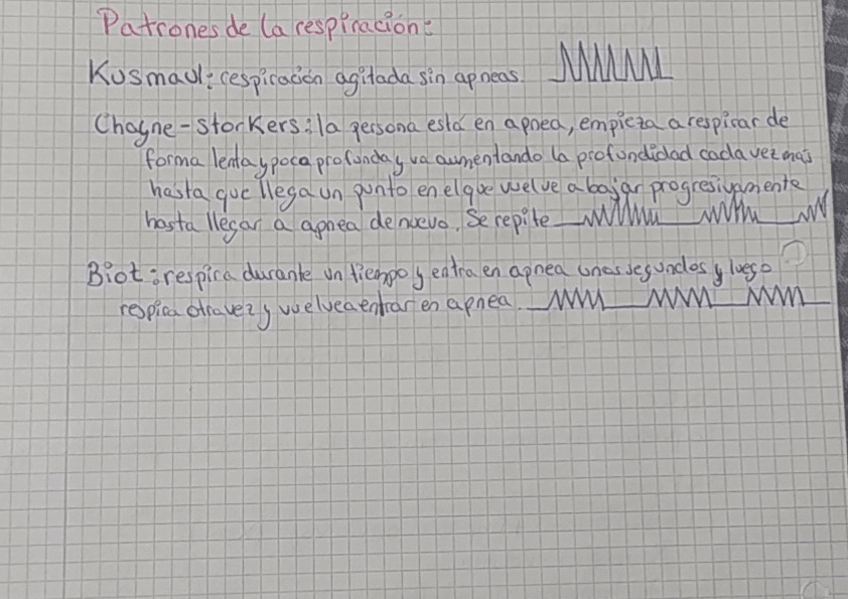 Patrones de la respiración:
Kusmaul: respiración agitada sin apneas.
Chayne-storkers: la persona está en apnea, empieza a respirar de
forma lenta y poca profunda y va aumentando la profundidad cada vez más
hasta que llega un punto en el que vuelve a bajar progresivamente
hasta llegar a apnea de nuevo. Se repite
Biot: respira durante un tiempo y entra en apnea unos segundos y luego
respira otra vez y vuelve a entrar en apnea.